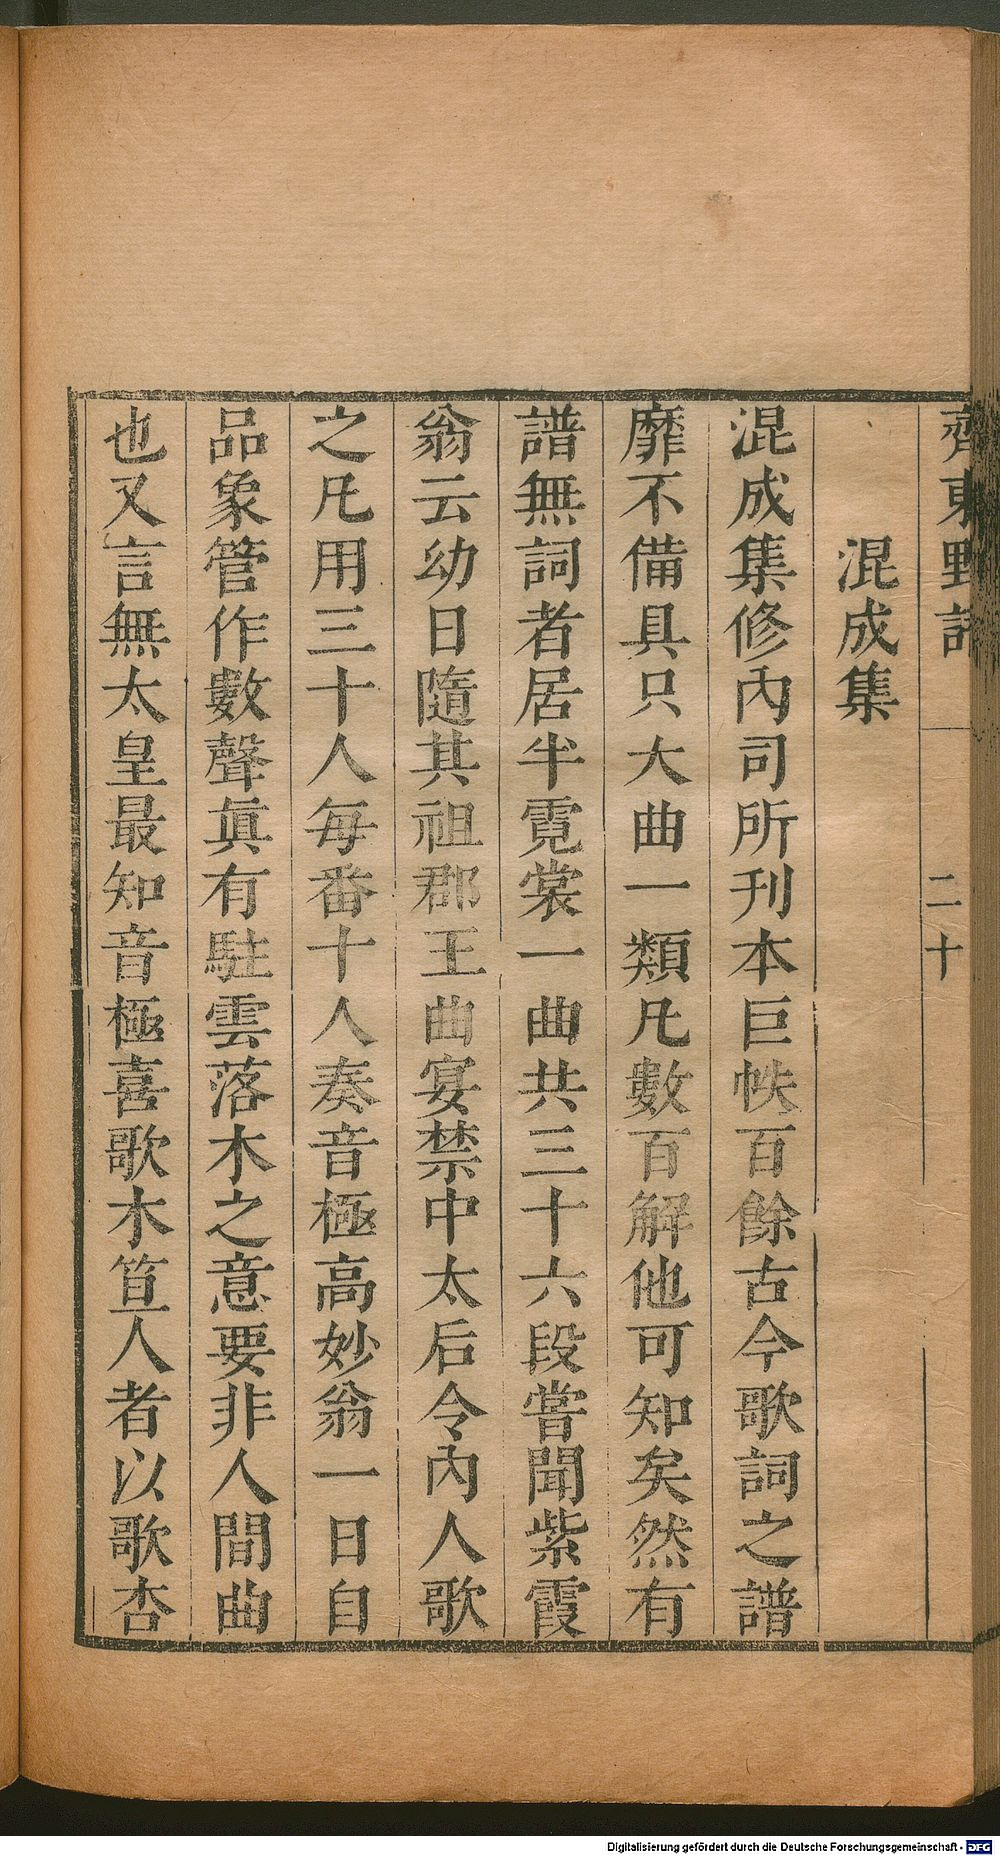 齊東野語
二十
混成集
混成集修內司所刊本巨帙百餘古今歌詞之譜
靡不備具只大曲一類凡數百解他可知矣然有
譜無詞者居半霓裳一曲共三十六段嘗聞紫霞
翁云幼日隨其祖郡王曲宴禁中太后令內人歌
之凡用三十人每番十人奏音極高妙翁一日自
品象管作數聲真有駐雲落木之意要非人間曲
也又言無太皇最知音極喜歌木笪人者以歌杏
Digitalisierung gefördert durch die Deutsche Forschungsgemeinschaft - DFG